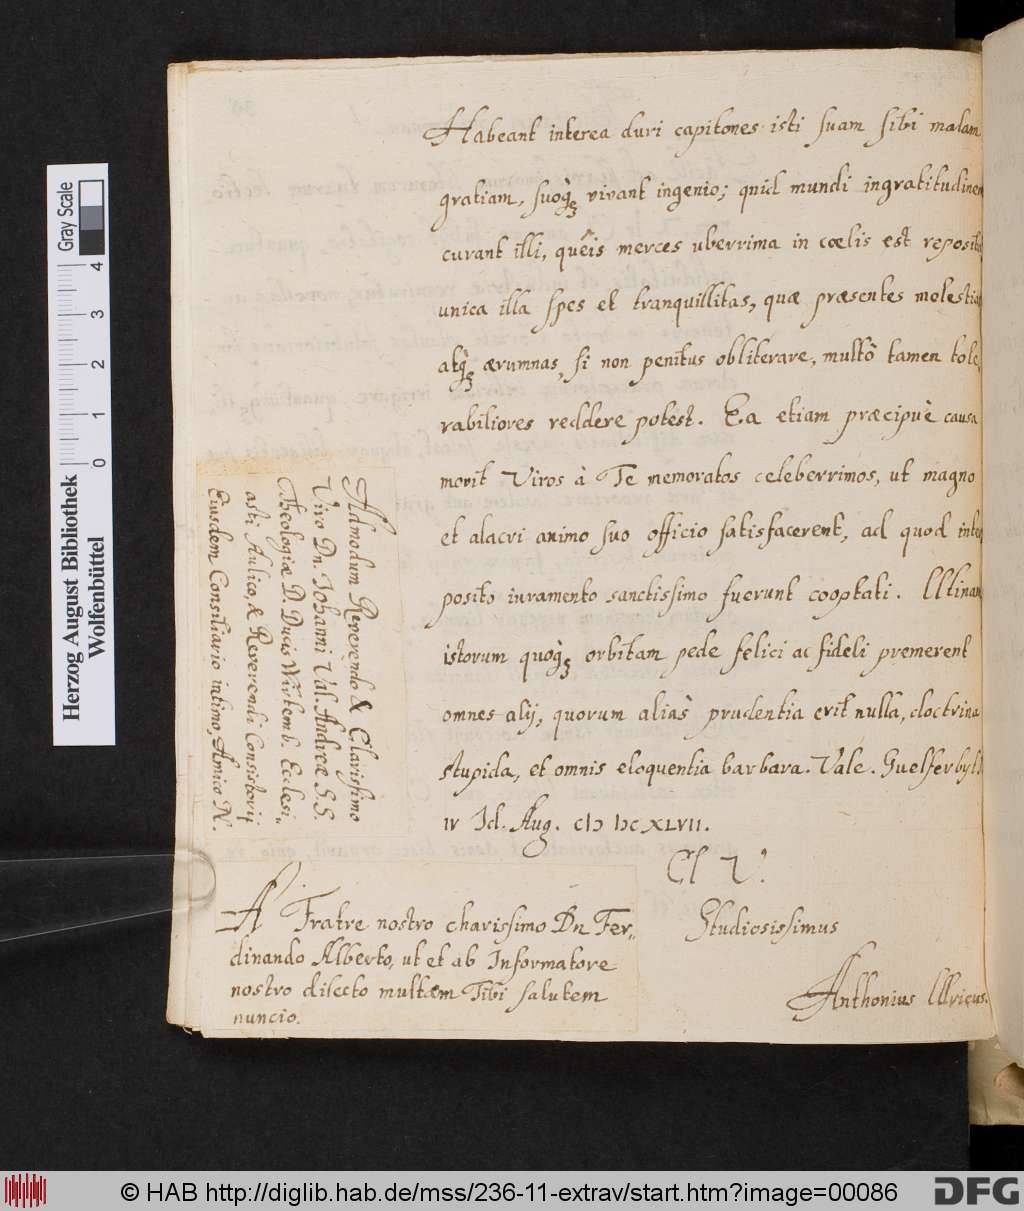 Habeant interea duri capitones isti suam sibi malam
gratiam, suoq; vivant ingenio; quid mundi ingratitudinem
curant illi, queîs merces uberrima in cœlis est reposita
unica illa spes et tranquillitas, quæ præsentes molestias
atq; ærumnas, si non penitus obliterare, multò tamen tole
rabiliores reddere potest. Ea etiam præcipuè causa
movit Viros à Te memoratos celeberrimos, ut magno
et alacri animo suo officio satisfacerent, ad quod inter
posito iuramento sanctissimo fuerunt cooptati. Utinam
istorum quoq; orbitam pede felici ac fideli premerent
omnes alij, quorum aliàs prudentia erit nulla, doctrina
stupida, et omnis eloquentia barbara. Vale. Guelferbyti
IV Id. Aug. CIƆ IƆC XLVII.
Cl T.
Studiosissimus
Anthonius Ulricus.
Admodum Reverendo & Clarissimo
Viro Dn. Johanni Val. Andreæ S.S.
Theologiæ D. Ducis Würtemb. Ecclesi„
asti Aulico, & Reverendi Consistorij
Eiusdem Consiliario intimo, Amico N.
A Fratre nostro charissimo Dn Fer„
dinando Alberto, ut et ab Informatore
nostro dilecto multam Tibi salutem
nuncio.
Herzog August Bibliothek
Wolfenbüttel
Gray Scale
0 1 2 3 4
© HAB http://diglib.hab.de/mss/236-11-extrav/start.htm?image=00086
DFG